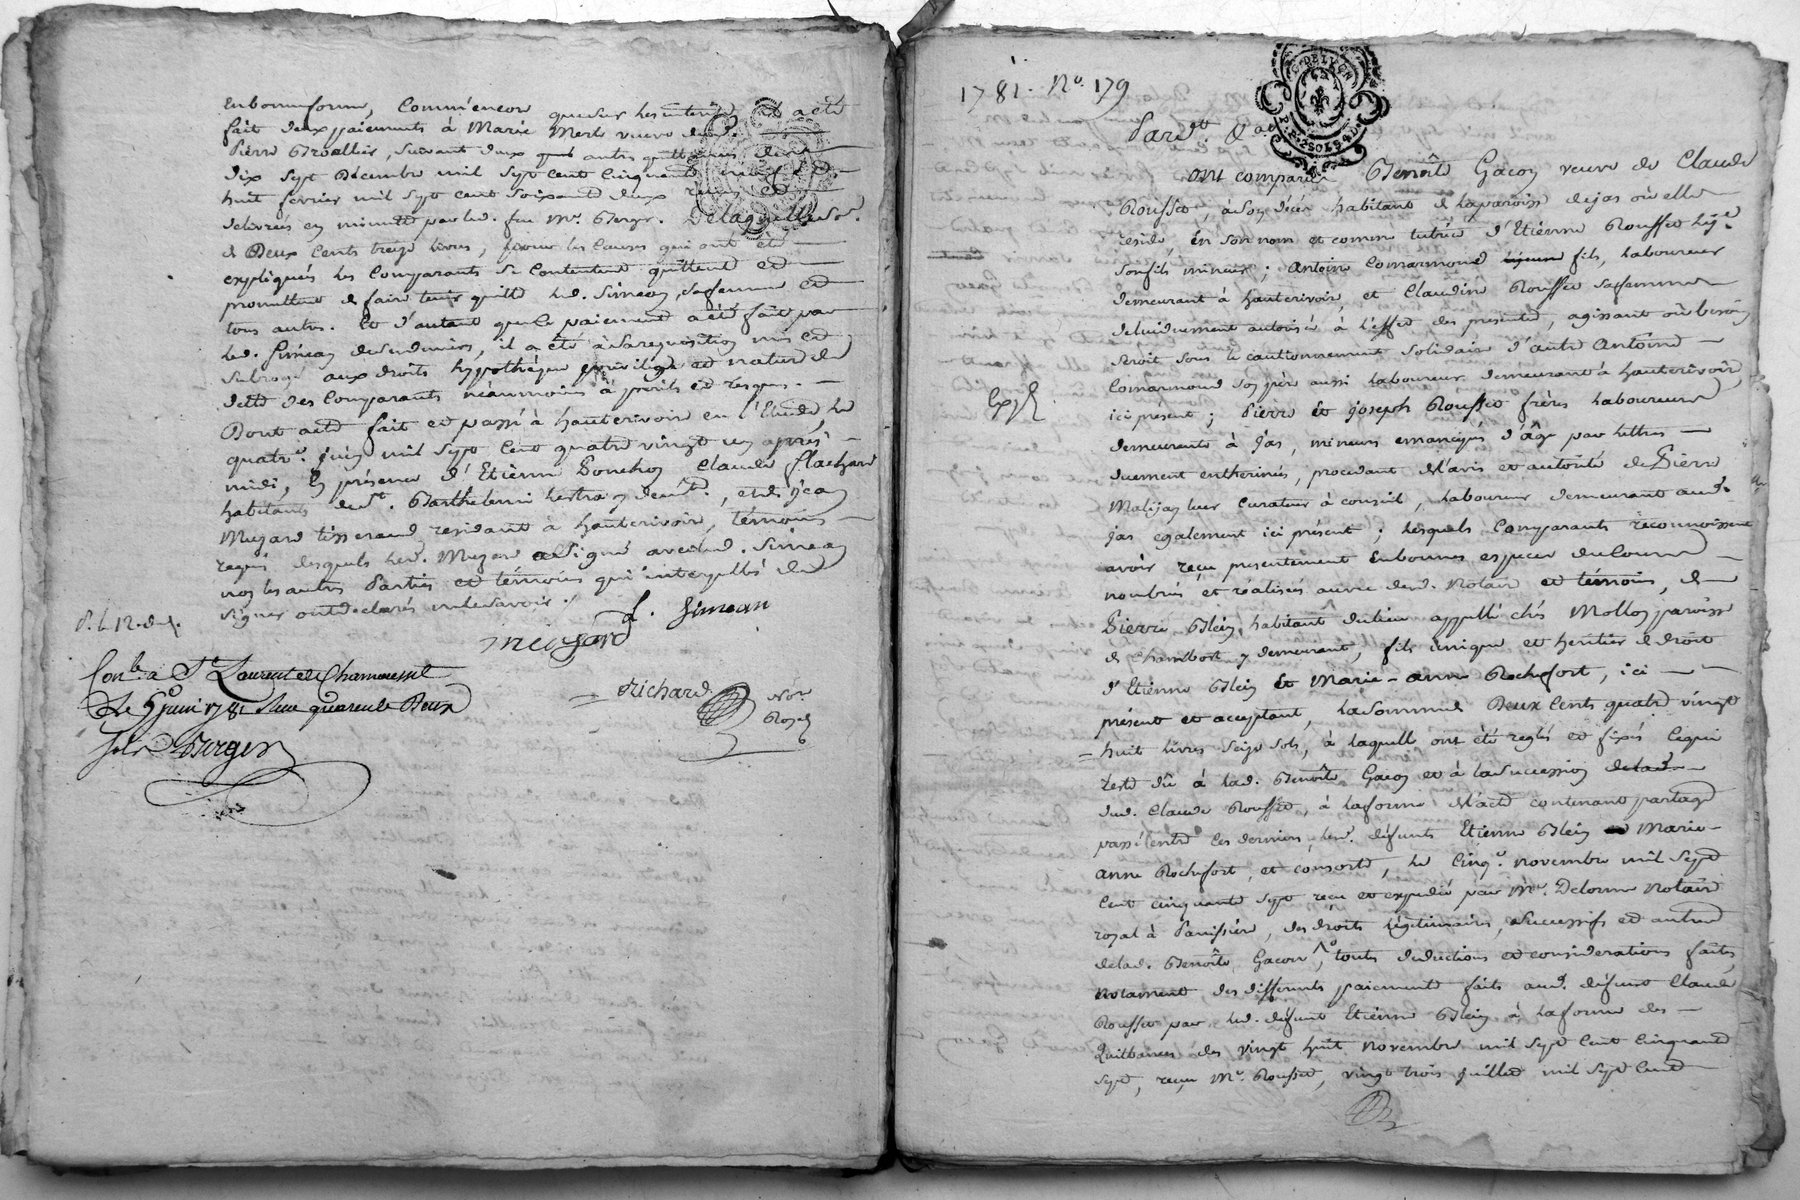 en bonne forme, comme encore que sur les intérêts ait acte
fait deux paiements à Marie Merle veuve dud.
Pierre Groallier, suivant deux autres quittances de
dix sept Décembre mil sept cent cinquante neuf et
huit fevrier mil sept cent soixante deux reçues et
delivrées en minutte par led. feu Me. Berger. De laquelle so.
de Deux cents treize livres, pour les causes qui ont été
expliqués les Comparants se contentent quittent et
promettent de faire tenir quitte led. Simean, sa femme et
tous autres. Et d'autant que le paiement a été fait par
led. Simean de ses deniers, il a été à sa requisition mis et
subrogé aux droits hypothèque privilège et nature de
dette des Comparants néanmoins à périls et risques.
Dont acte fait et passé à hauterivoire en l'Etude, le
quatre. juin mil sept cent quatre vingt un après
midi, En présence d'Etienne Ponchon Claude flachard
habitants de St. Barthelemi lestra, et de Jean
Mugard tisserand residant à hauterivoire, témoins
requis desquels led. Mugard a signé avec led. Simean
non les autres Parties et témoins qui interpellés de
signer ont declarés ne le savoir ./.
f. Simean
mugard
Richard Nore
Royal
Conlé à St Laurent de Chamousset
Le 5 juin 1781 Reçu quarente Deux
sols Berger
1781. No. 179
Pardt. &a.
G. DE LYON
ont comparu Benoîte Gacon veuve de Claude
Rousset, à son décès habitant de la paroisse de jas où elle
reside, en son nom et comme tutrice d'Etienne Rousset
son fils mineur ; Antoine Comarmond fils, laboureur
demeurant à hauterivoire, et Claudine Rousset sa femme
de lui duement autorisée à l'effet des presentes, agissant où besoin
seroit sous le cautionnement solidaire d'autre Antoine
Comarmond son père aussi laboureur demeurant à hauterivoire,
Expé
ici présent ; Pierre et joseph Rousset frères laboureurs
demeurants à Jas, mineurs emancipés d'âge par lettres
duement entherinées, procedant de l'avis et autorité de Pierre
Malijay leur curateur à conseil, laboureur demeurant aud.
jas egalement ici présent ; lesquels Comparants reconnoissent
avoir reçu presentement en bonnes especes de Cours
nombrées et réalisées au vu dud. Notaire et témoins, de
Pierre Blein, habitant du lieu appellé chés Mollon paroisse
de Chambost y demeurant, fils unique et heritier de droit
d'Etienne Blein et Marie-anne Rochefort, ici
présent et acceptant, la somme de Deux Cents quatre vingt
huit livres seize sols, à laquelle ont été reglés et fixés ce qui
reste dû à lad. Benoîte Gacon et à la succession
dud. Claude Rousset, à la forme de l'acte contenant partage
passé entre ces derniers, led. défunts Etienne Blein et Marie-
anne Rochefort, et consorts, le cinq. novembre mil sept
cent cinquante sept reçu et expedié par Me. Delorme Notaire
royal à Panissière, des droits légitimaires, successifs et autres
de lad. Benoîte Gacon, toutes deductions et considerations faites,
notament des differents paiements faits aud. défunt Claude
Rousset par led. défunt Etienne Blein à la forme des
Quittances des vingt huit novembre mil sept cent cinquante
sept, reçue Me. Rousset, vingt trois juillet mil sept cent